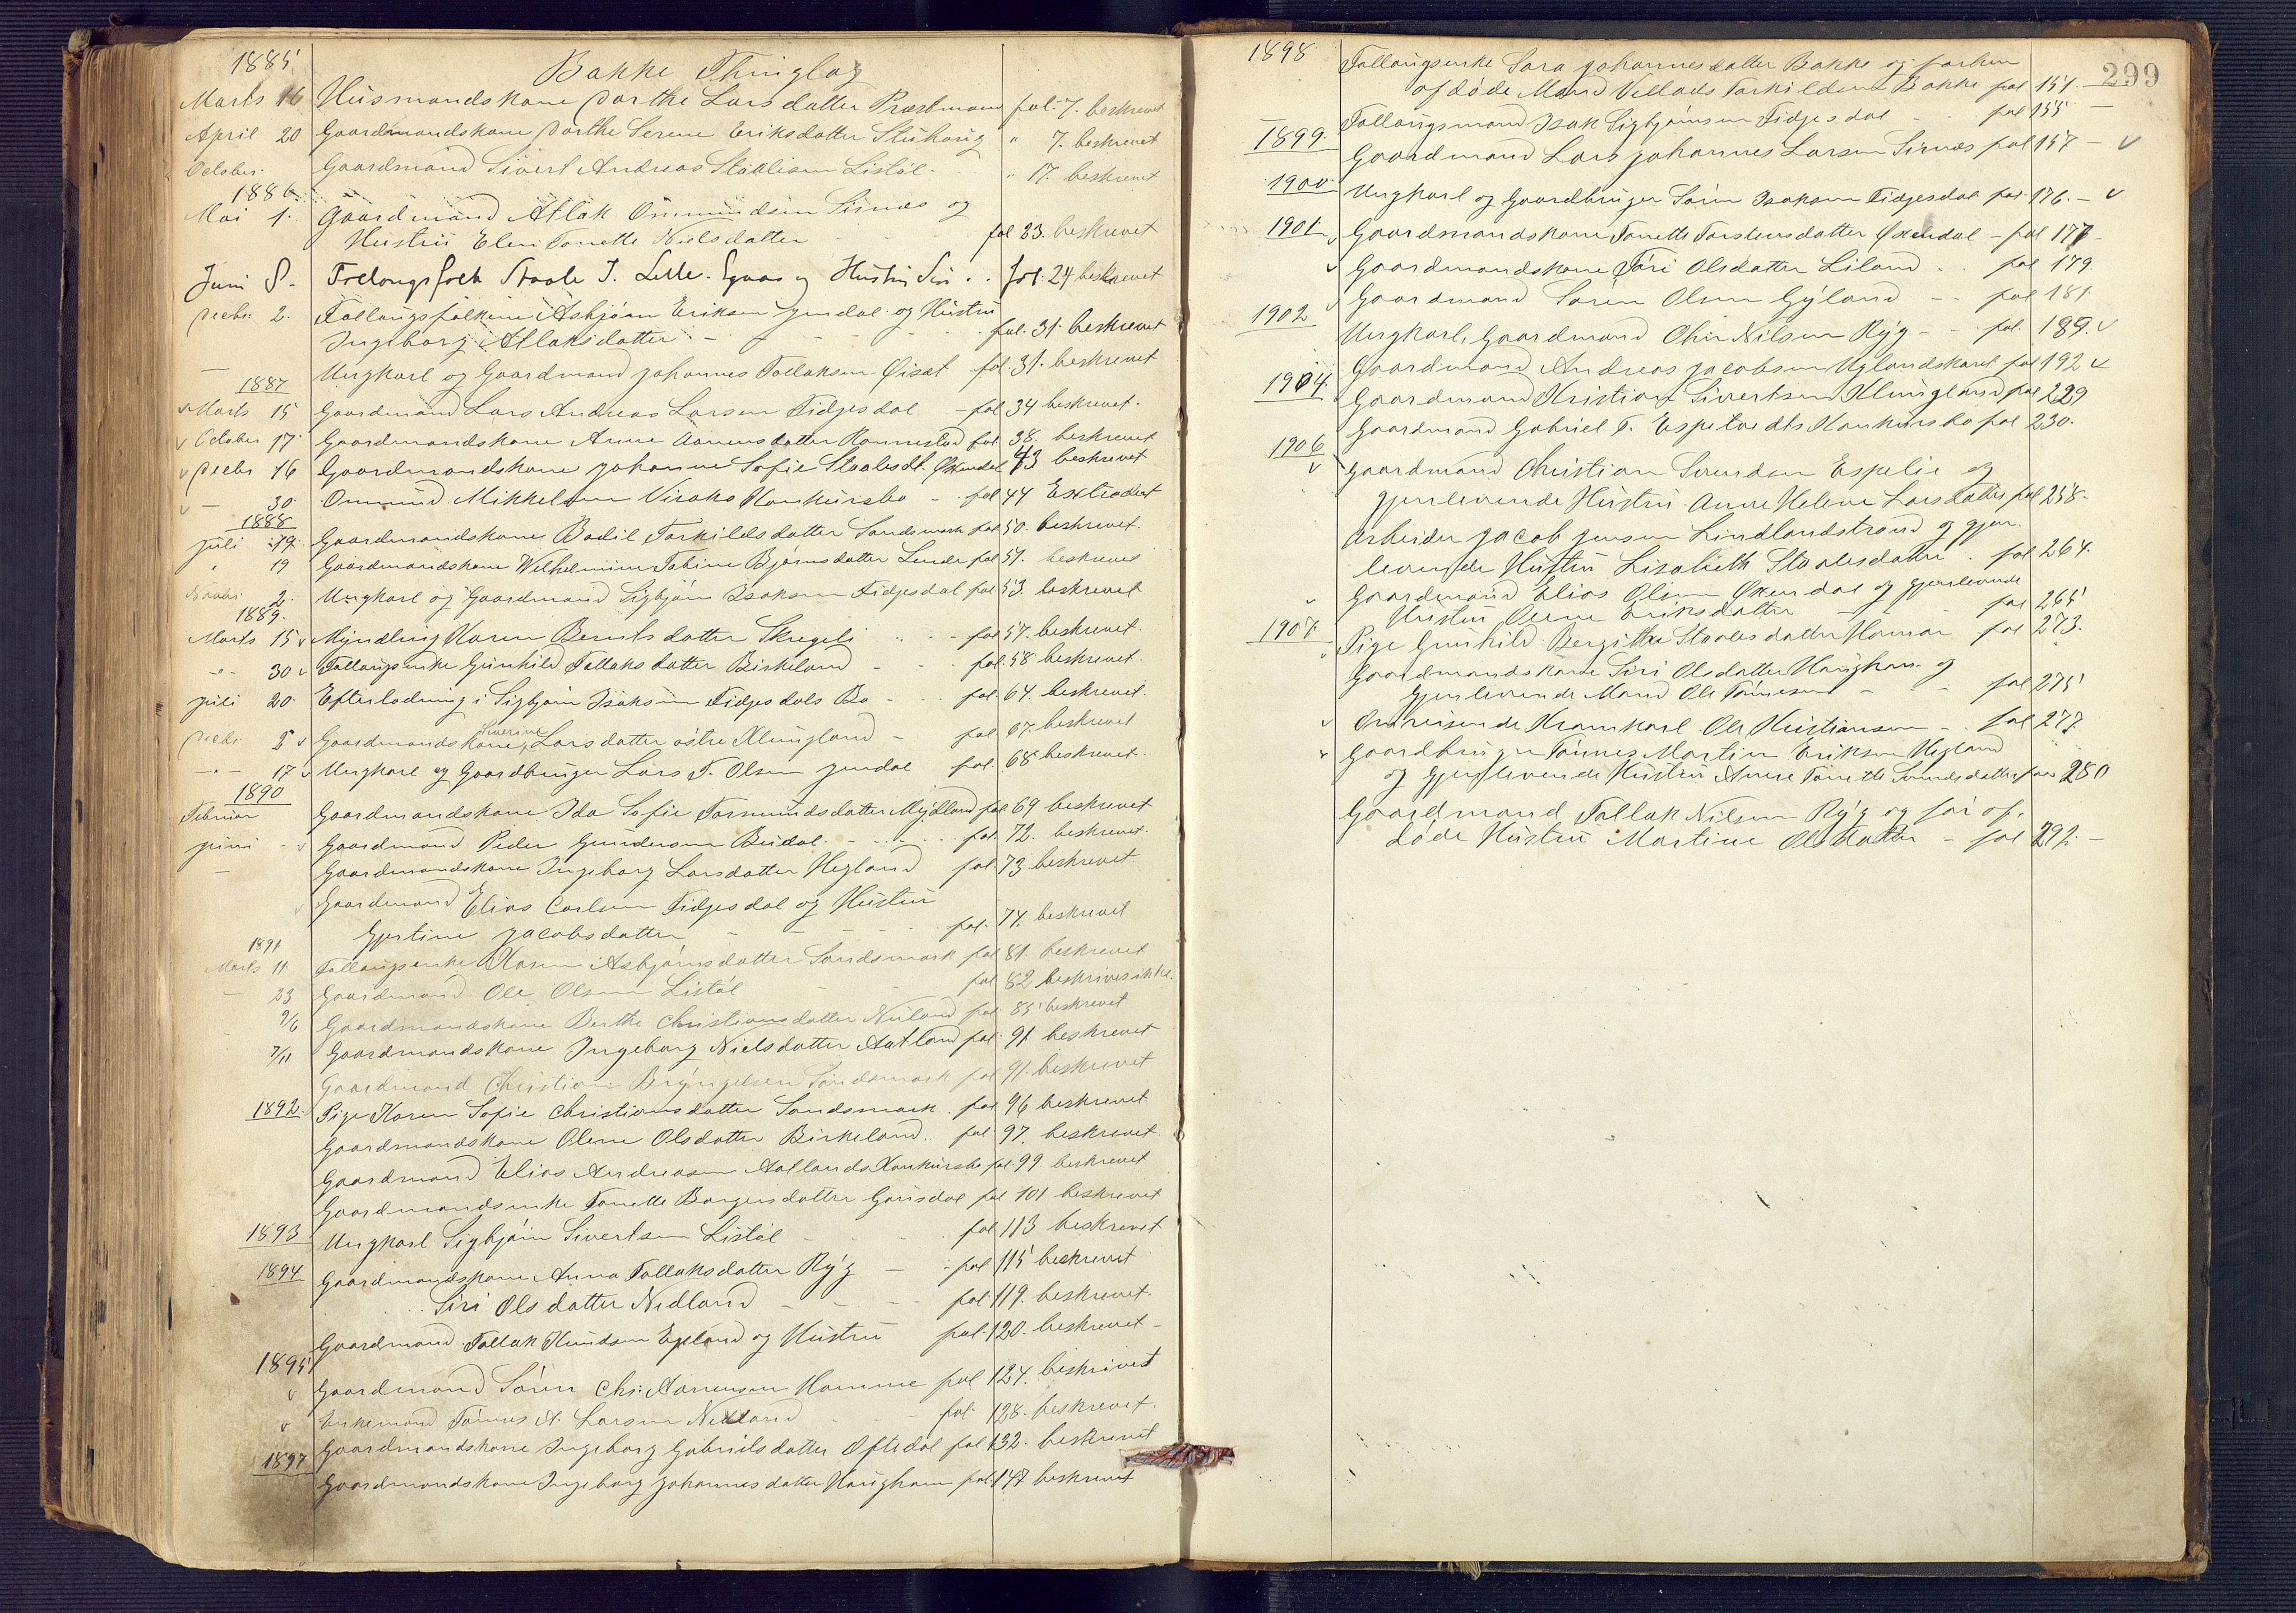 1885
Bakke Thinglag
Marts 16 Husmandskone Dorthe Larsdatter Præstmoen fol: 7. beskrevet
April 20 Gaardmandskone Dorthe Serene Eriksdatter Stuhaug " 7. beskrevet
October. Gaardmand Sivert Andreas Staalisen Listøl. " 17. beskrevet
1886.
Mai 1. Gaardmand Atlak Ommundsen Sirnæs og
Hustru Elen Tonette Nielsdatter fol 23. beskrevet
Juni 8. Føderaadsfolk Staale J. Lille-Egaas og Hustru Siri .. fol. 24 beskrevet
Decbr. 2. Follaugsfolkene Asbjørn Eriksen Jerdal og Hustru
Ingeborg Atlaksdatter - - - - fol. 31. beskrevet
— Ungkarl og Gaardmand Johannes Tollaksen Øisæt fol. 31. beskrevet
1887
v Marts 15 Gaardmand Lars Andreas Larsen Fidjesdal - fol 34 beskrevet.
v October 17 Gaardmandskone Anne Aanensdatter Rannestad fol. 38. beskrevet
v Decbr 16 Gaardmandskone Johanne Sofie Staalesdt. Øxendal 43 beskrevet
v — 30 Ommund Mikkelsen Viraks Konkursbo - fol 44 Extraderet
1888
Juli 19. Gaardmandskone Bodil Torkildsdatter Sandsmark fol 50. beskrevet.
" 19 Gaardmandskone Wilhelmine Tobine Bjørnsdatter Lunde fol 51. beskrevet
Novbr. 2. Ungkarl og Gaardmand Sigbjørn Isaksen Fidjesdal fol 53. beskrevet
1889.
Marts 15 v Myndling Karen Berntsdatter Skregeli .. .. - fol 57. beskrevet.
-"- 30 v Follaugsenke Gunhild Tollaksdatter Birkeland - - fol. 58 beskrevet.
Juli 20. Efterlodning i Sigbjørn Isaksen Fidjesdals Bo - fol. 64. beskrevet.
Decbr. 2 v Gaardmandskone Severine Larsdatter østre Klungland - fol 67. beskrevet
-"- 17 v Ungkarl og Gaardbruger Lars T. Olsen Jerdal fol. 68 beskrevet.
1890
Februar Gaardmandskone Ida Sofie Tormundsdatter Mydland fol 69 beskrevet
Juni - v Gaardmand Peder Gundersen Buidal. - . . . fol. 72. beskrevet.
— Gaardmandskone Ingeborg Larsdatter Hegland fol 73 beskrevet.
v Gaardmand Elias Carlsen Fidjesdal og Hustru
Gjertine Jacobsdatter - - - - fol. 74. beskrevet
1891
Marts 11 Follaugsenke Karen Asbjørnsdatter Sandsmark fol 81. beskrevet
— 23 Gaardmand Ole Olsen Listøl - - fol 82 beskrives ikke.
9/6 Gaardmandskone Berthe Christiansdatter Neiland fol 85 beskrevet
7/11 Gaardmandskone Ingeborg Nielsdatter Aatland fol. 91 beskrevet
Gaardmand Christian Bryngelsen Sandsmark fol 91. beskrevet
1892. v Pige Karen Sofie Christiansdatter Sandsmark. fol 96 beskrevet
Gaardmandskone Olene Olsdatter Birkeland. fol. 97. beskrevet
Gaardmand Elias Andreasen Aatlands Konkursbo fol. 99 beskrevet
Gaardmandsenke Tonette Borgersdatter Gausdal fol 101 beskrevet
1893 Ungkarl Sigbjørn Sivertsen Listøl - - - fol 113 beskrevet
1894 Gaardmandskone Anna Tollaksdatter Ryg - - fol 115 beskrevet
Siri Olsdatter Nedland - - - fol. 119. beskrevet.
Gaardmand Tollak Knudsen Egeland og Hustru fol. 120. beskrevet -
1895
v Gaardmand Søren Chr: Aanensen Homme fol 124. beskrivet
v Enkemand Tønnes A. Larsen Nedland - - fol. 128. beskrevet.
Gaardmandskone Ingeborg Gabrielsdatter Oftedal fol 132. beskrevet
1897 Gaardmandskone Ingeborg Johannesdatter Haugham fol. 147 beskrevet
299
1898 Follaugsenke Sara Johannesdatter Bakke og forhen
afdøde Mand Villads Torkildsens Bakke fol 151. -
Follaugsmand Isak Sigbjørnsen Fidjesdal - - fol 155 -
1899. Gaardmand Lars Johannes Larsen Sirnæs fol 157 - v
1900. Ungkarl og Gaardbruger Søren Isaksen Fidjesdal fol. 176. - v
1901. v Gaardmandskone Tonette Torstensdatter Øxendal - fol 177 -
v Gaardmandskone Tóri Olsdatter Liland - .. fol 179.
v Gaardmand Søren Olsen Gyland - - fol 181.
1902 Ungkarl, Gaardmand Ole Nilsen Ryg - - fol. 189. v
Gaardmand Andreas Jacobsen Uglandskaret fol 192 v
1904. Gaardmand Kristian Sivertsen Klungland fol 229
Gaardmand Gabriel T. Espetvedts Konkursbo fol 230.
1906
v Gaardmand Christian Svendsen Espelie og
gjenlevende Hustru Anne Helene Larsdatter fol 258.
Arbeider Jacob Jensen Lindlandstrand og gjen-
levende Hustru Lisabeth Staalesdatter . fol 264.
v Gaardmand Elias Olsen Øxendal og gjenlevende
Hustru Olene Eriksdatter - - fol 265
1907. v Pige Gunhild Bergithe Staalesdatter Hamar fol 273.
Gaardmandskone Siri Olsdatter Haugham og
Gjenlevende Mand Ole Tønnesen - - fol 275
v Omreisende Kramkarl Ole Kristiansen - . fol 277.
v Gaardbruger Tønnes Martin Eriksen Hegland
og Gjenlevende Hustru Anne Tonette Svendsdatter fol 280
Gaardmand Tollak Nilsen Ryg og før af-
døde Hustru Martine Olsdatter - fol 292. -